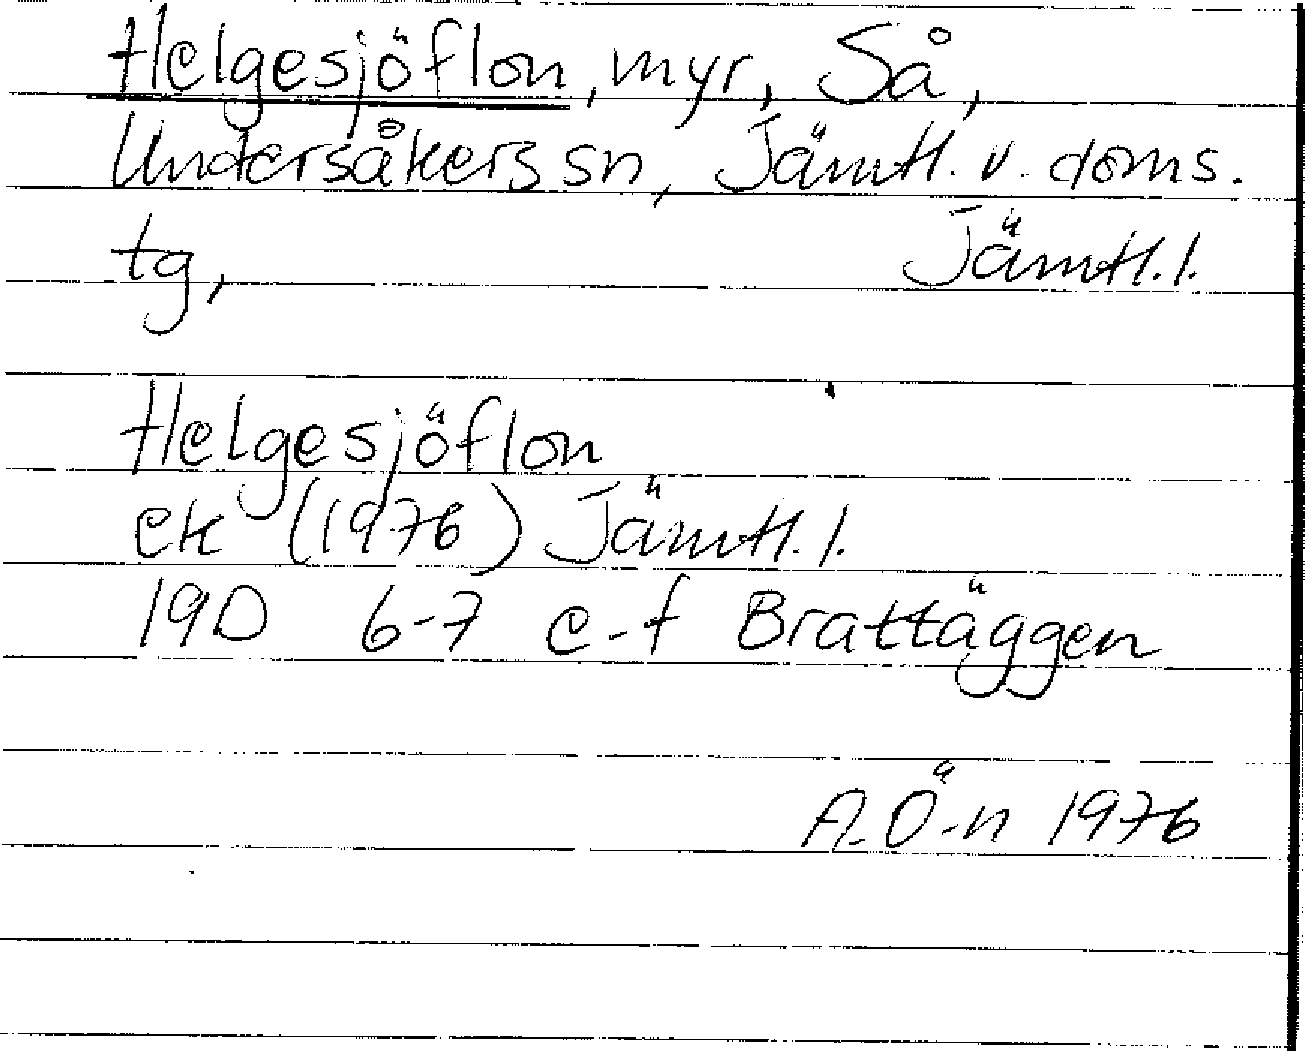 Helgesjöflon, myr, Så,
Undersåkers sn, Jämtl. v. doms.
tg, Jämtl. l.
Helgesjöflon
ek (1976) Jämtl. l.
19D 6-7 e-f Brattäggen
A. Ö-n 1976